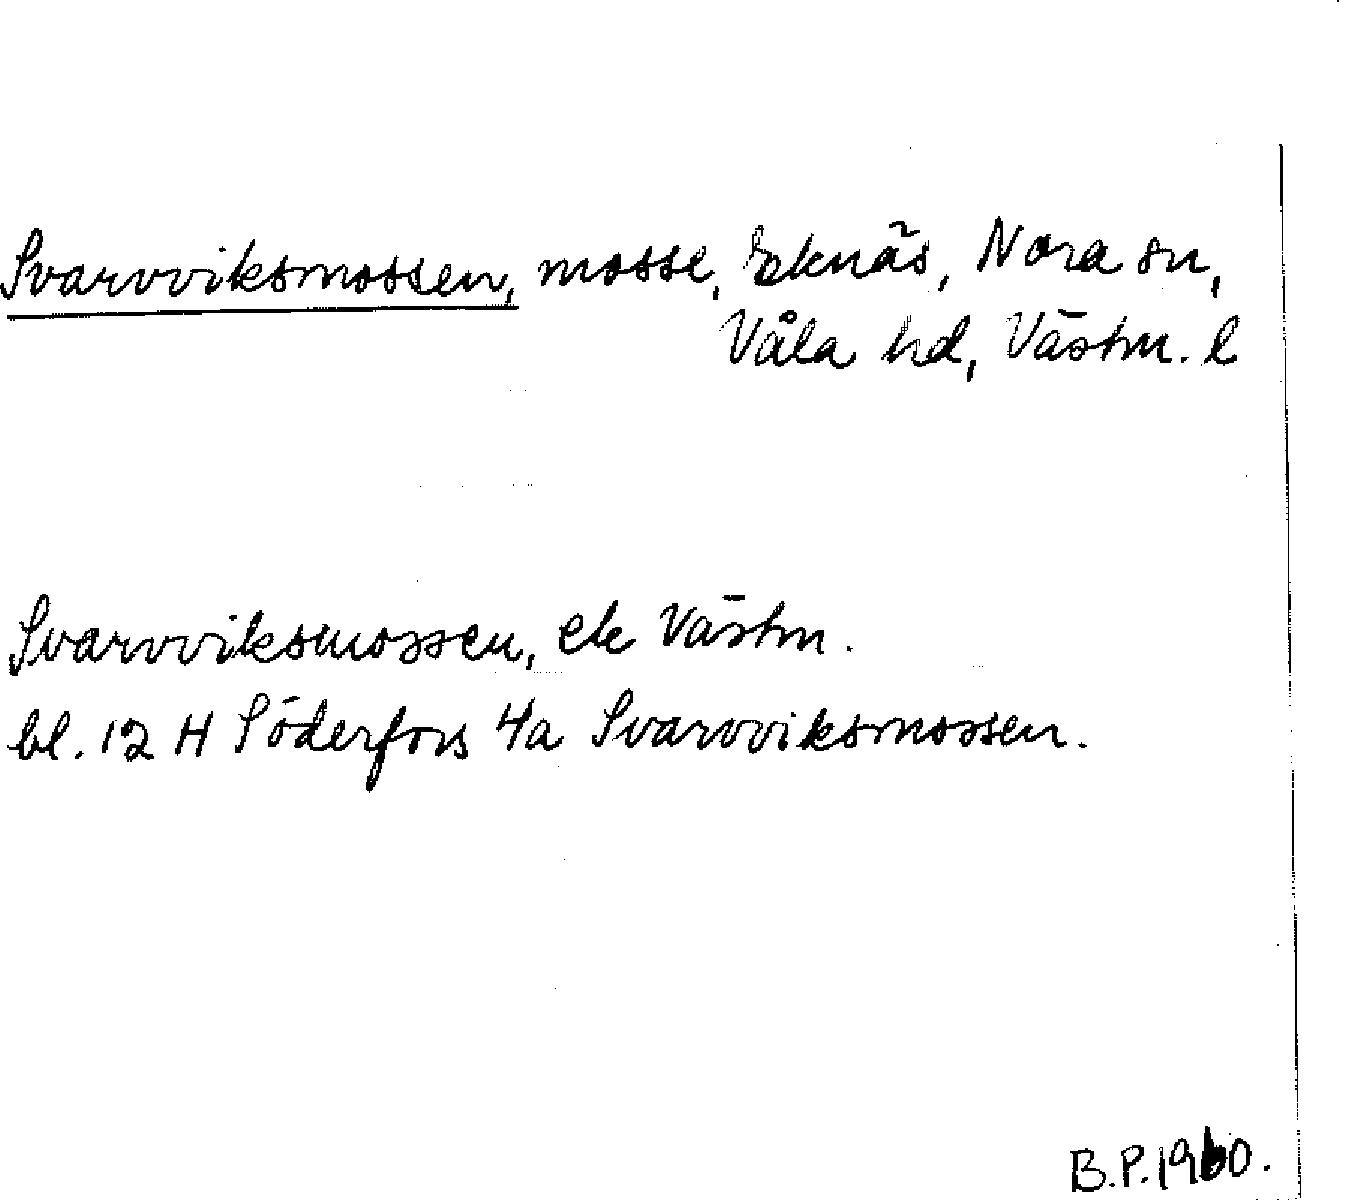 Svarvviksmossen, mosse, Eknäs, Nora sn,
Våla hd, Västm. l
Svarvviksmossen, ek Västm.
bl. 12 H Söderfors 4a Svarvviksmossen.
B.P. 1960.